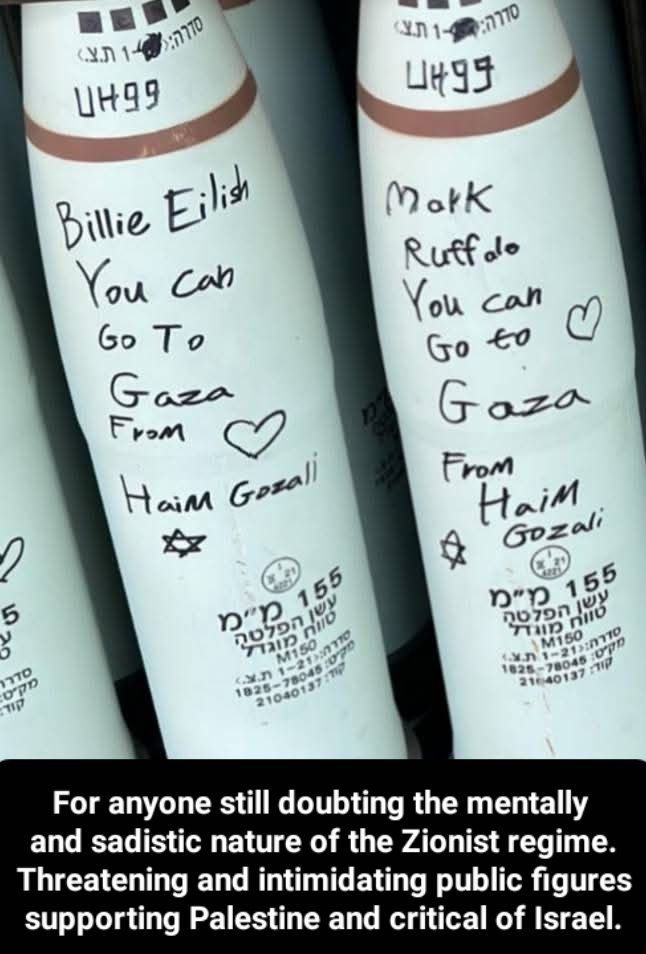 סדרה: 1- ת.צ.
UH99
Billie Eilish
You can
Go To
Gaza
From
Haim Gozali
155 מ"מ
עשן הפלטה
טווח מוגדל
M150
סדרה: 1-21 ת.צ.
מק"ט: 1825-78045
קוד: 21040137
סדרה: 1- ת.צ.
UH99
Mark
Ruffalo
You can
Go to
Gaza
From
Haim
Gozali
155 מ"מ
עשן הפלטה
טווח מוגדל
M150
סדרה: 1-21 ת.צ.
מק"ט: 1825-78045
קוד: 21040137
For anyone still doubting the mentally
and sadistic nature of the Zionist regime.
Threatening and intimidating public figures
supporting Palestine and critical of Israel.